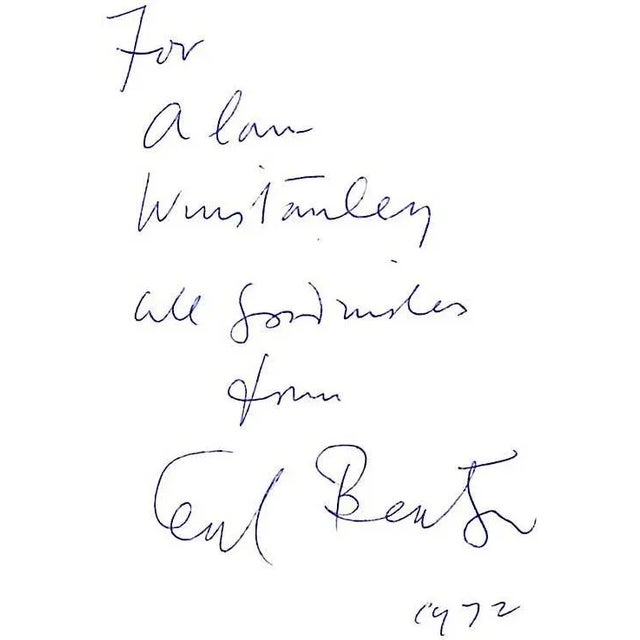 For
Alan
Winstanley
all good wishes
from
Cecil Beaton
1972